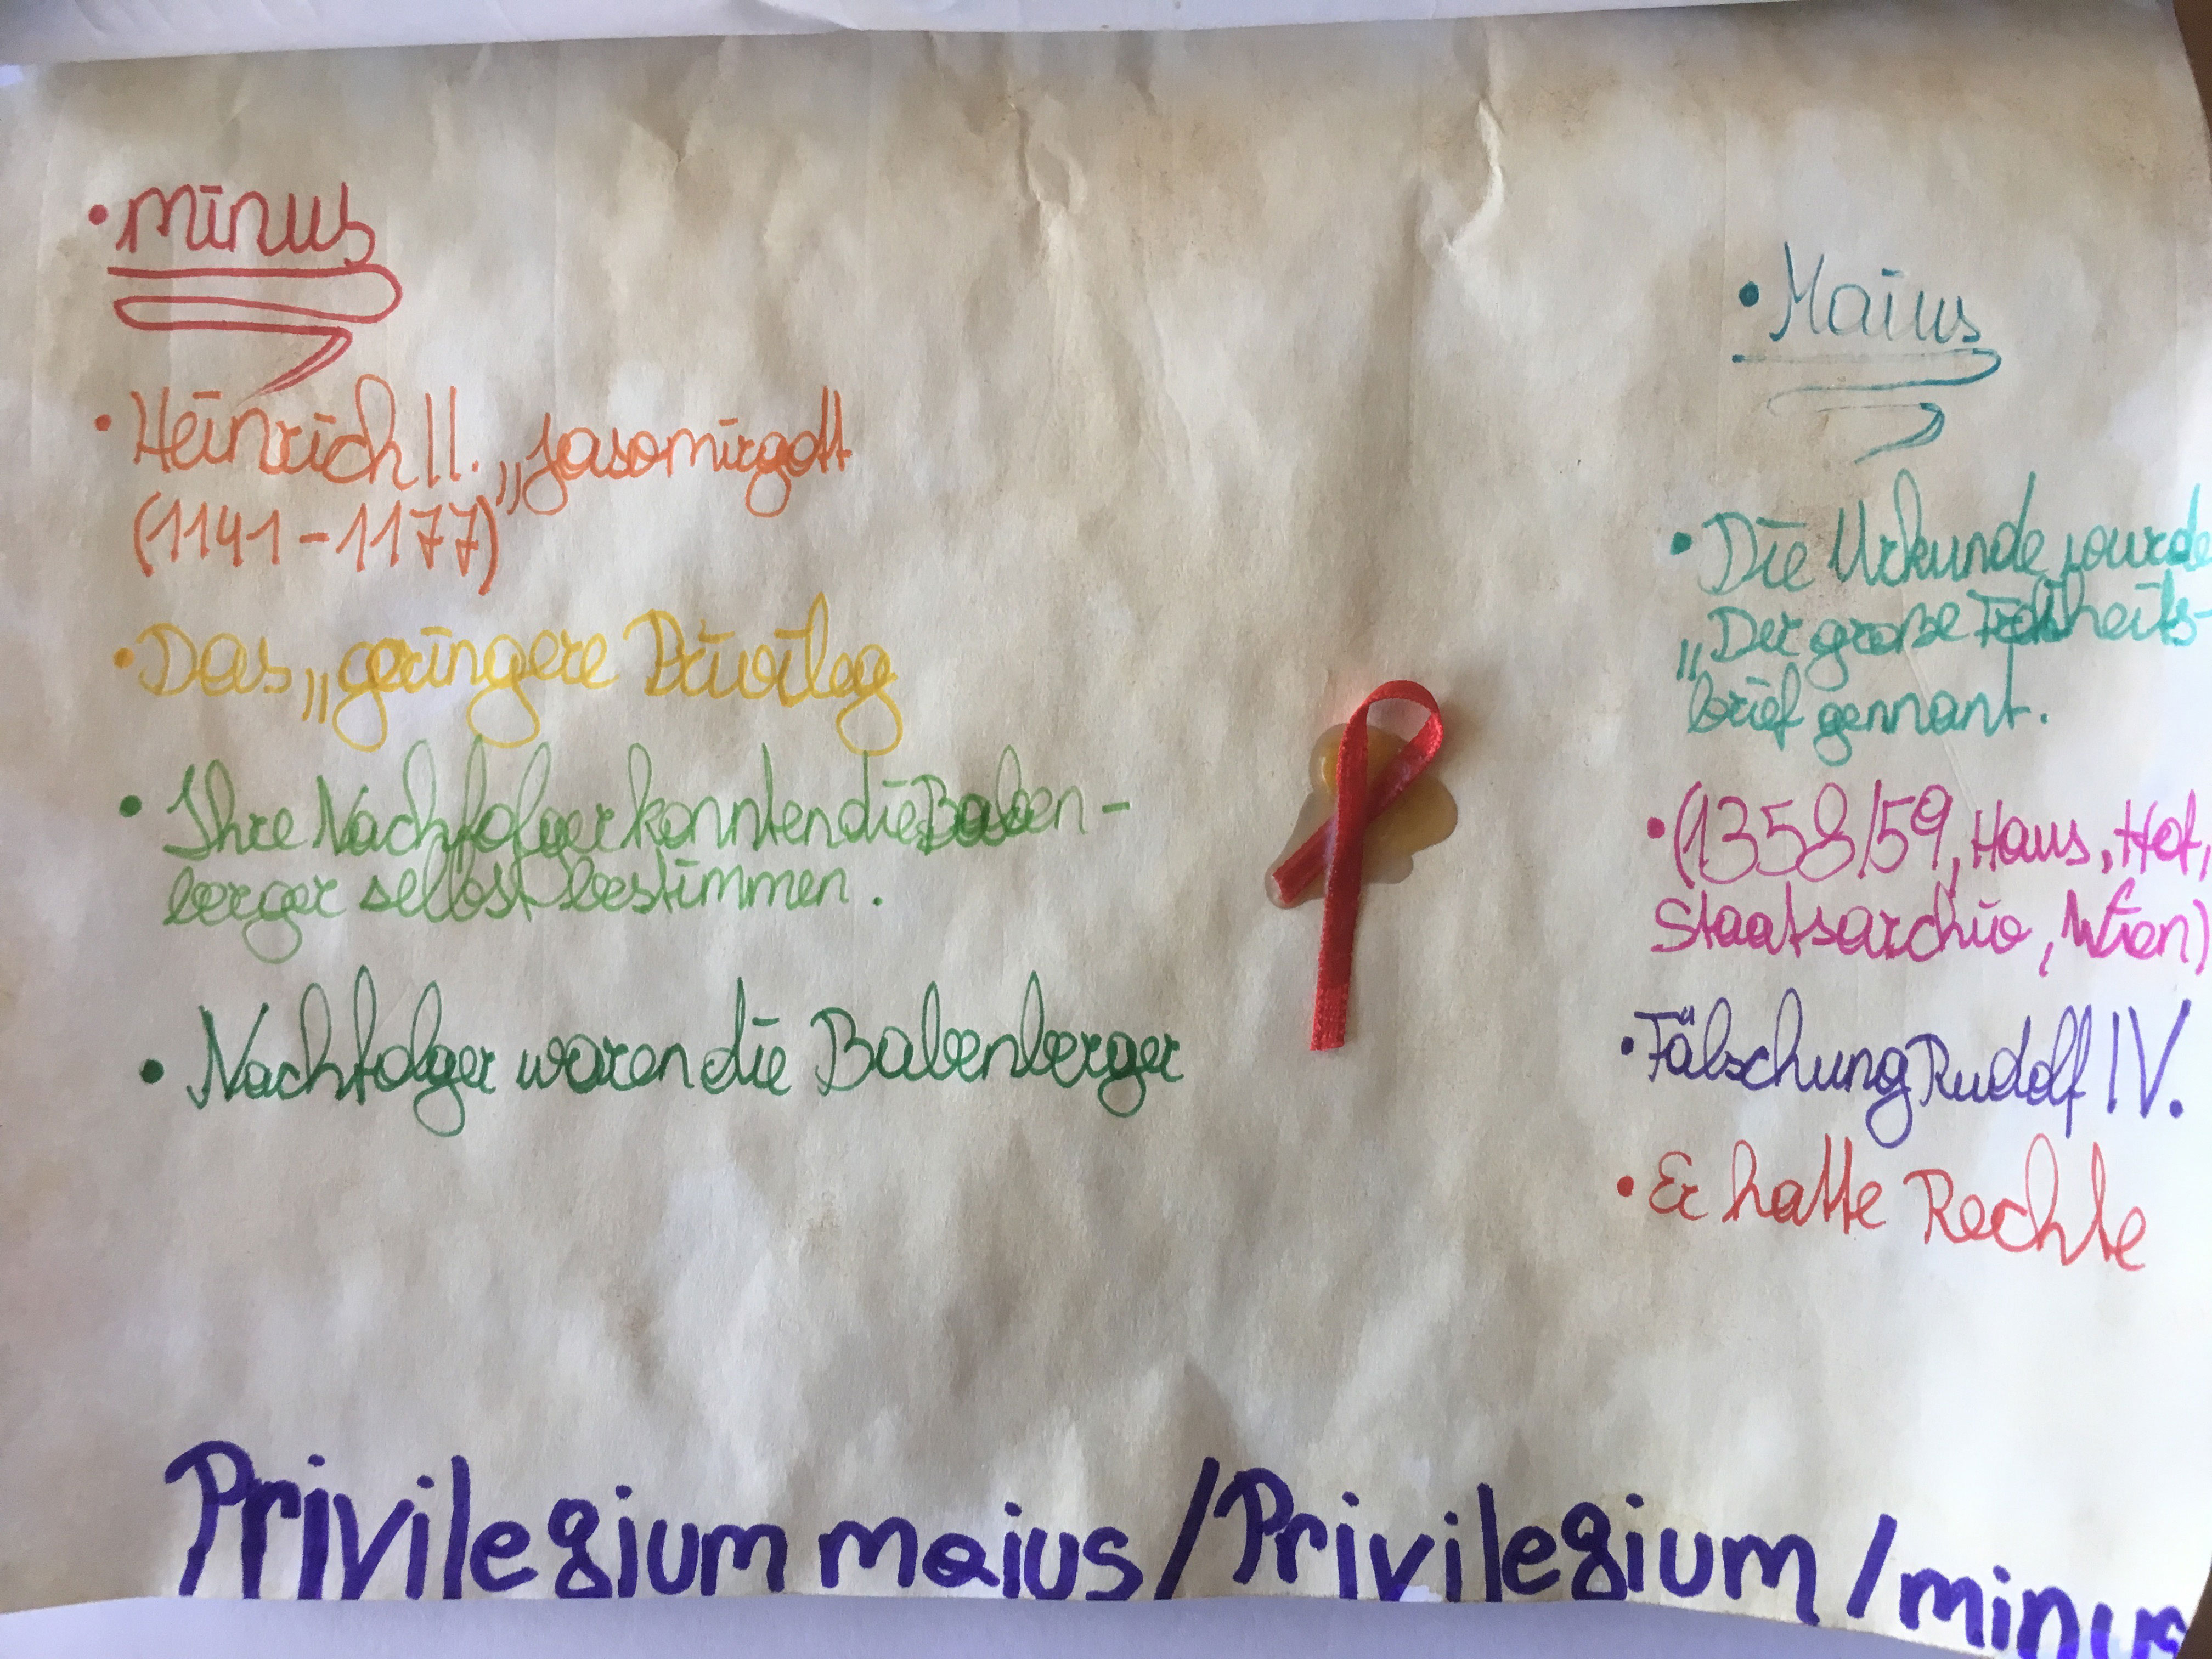 • minus
• Heinrich II. „Jasomirgott
(1141-1177)
• Das „geringere Privileg
• Ihre Nachfolger konnten die Baben-
berger selbst bestimmen.
• Nachfolger waren die Babenberger
• Maius
• Die Urkunde wurde
„Der große Freiheits-
brief gennant.
• (1358/59, Haus, Hof,
Staatsarchiv, Wien)
• Fälschung Rudolf IV.
• Er hatte Rechte
Privilegium maius/Privilegium/minus